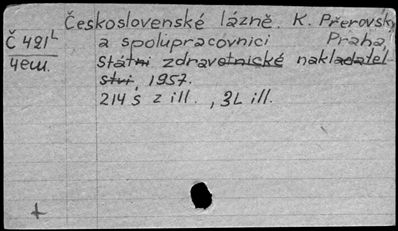 Československé lázně. K. Přerovský
a spolupracovníci Praha,
Státní zdravotnické nakladatel-
ství, 1957.
214 s z ill., 3L ill.
Č 421L
4eu.